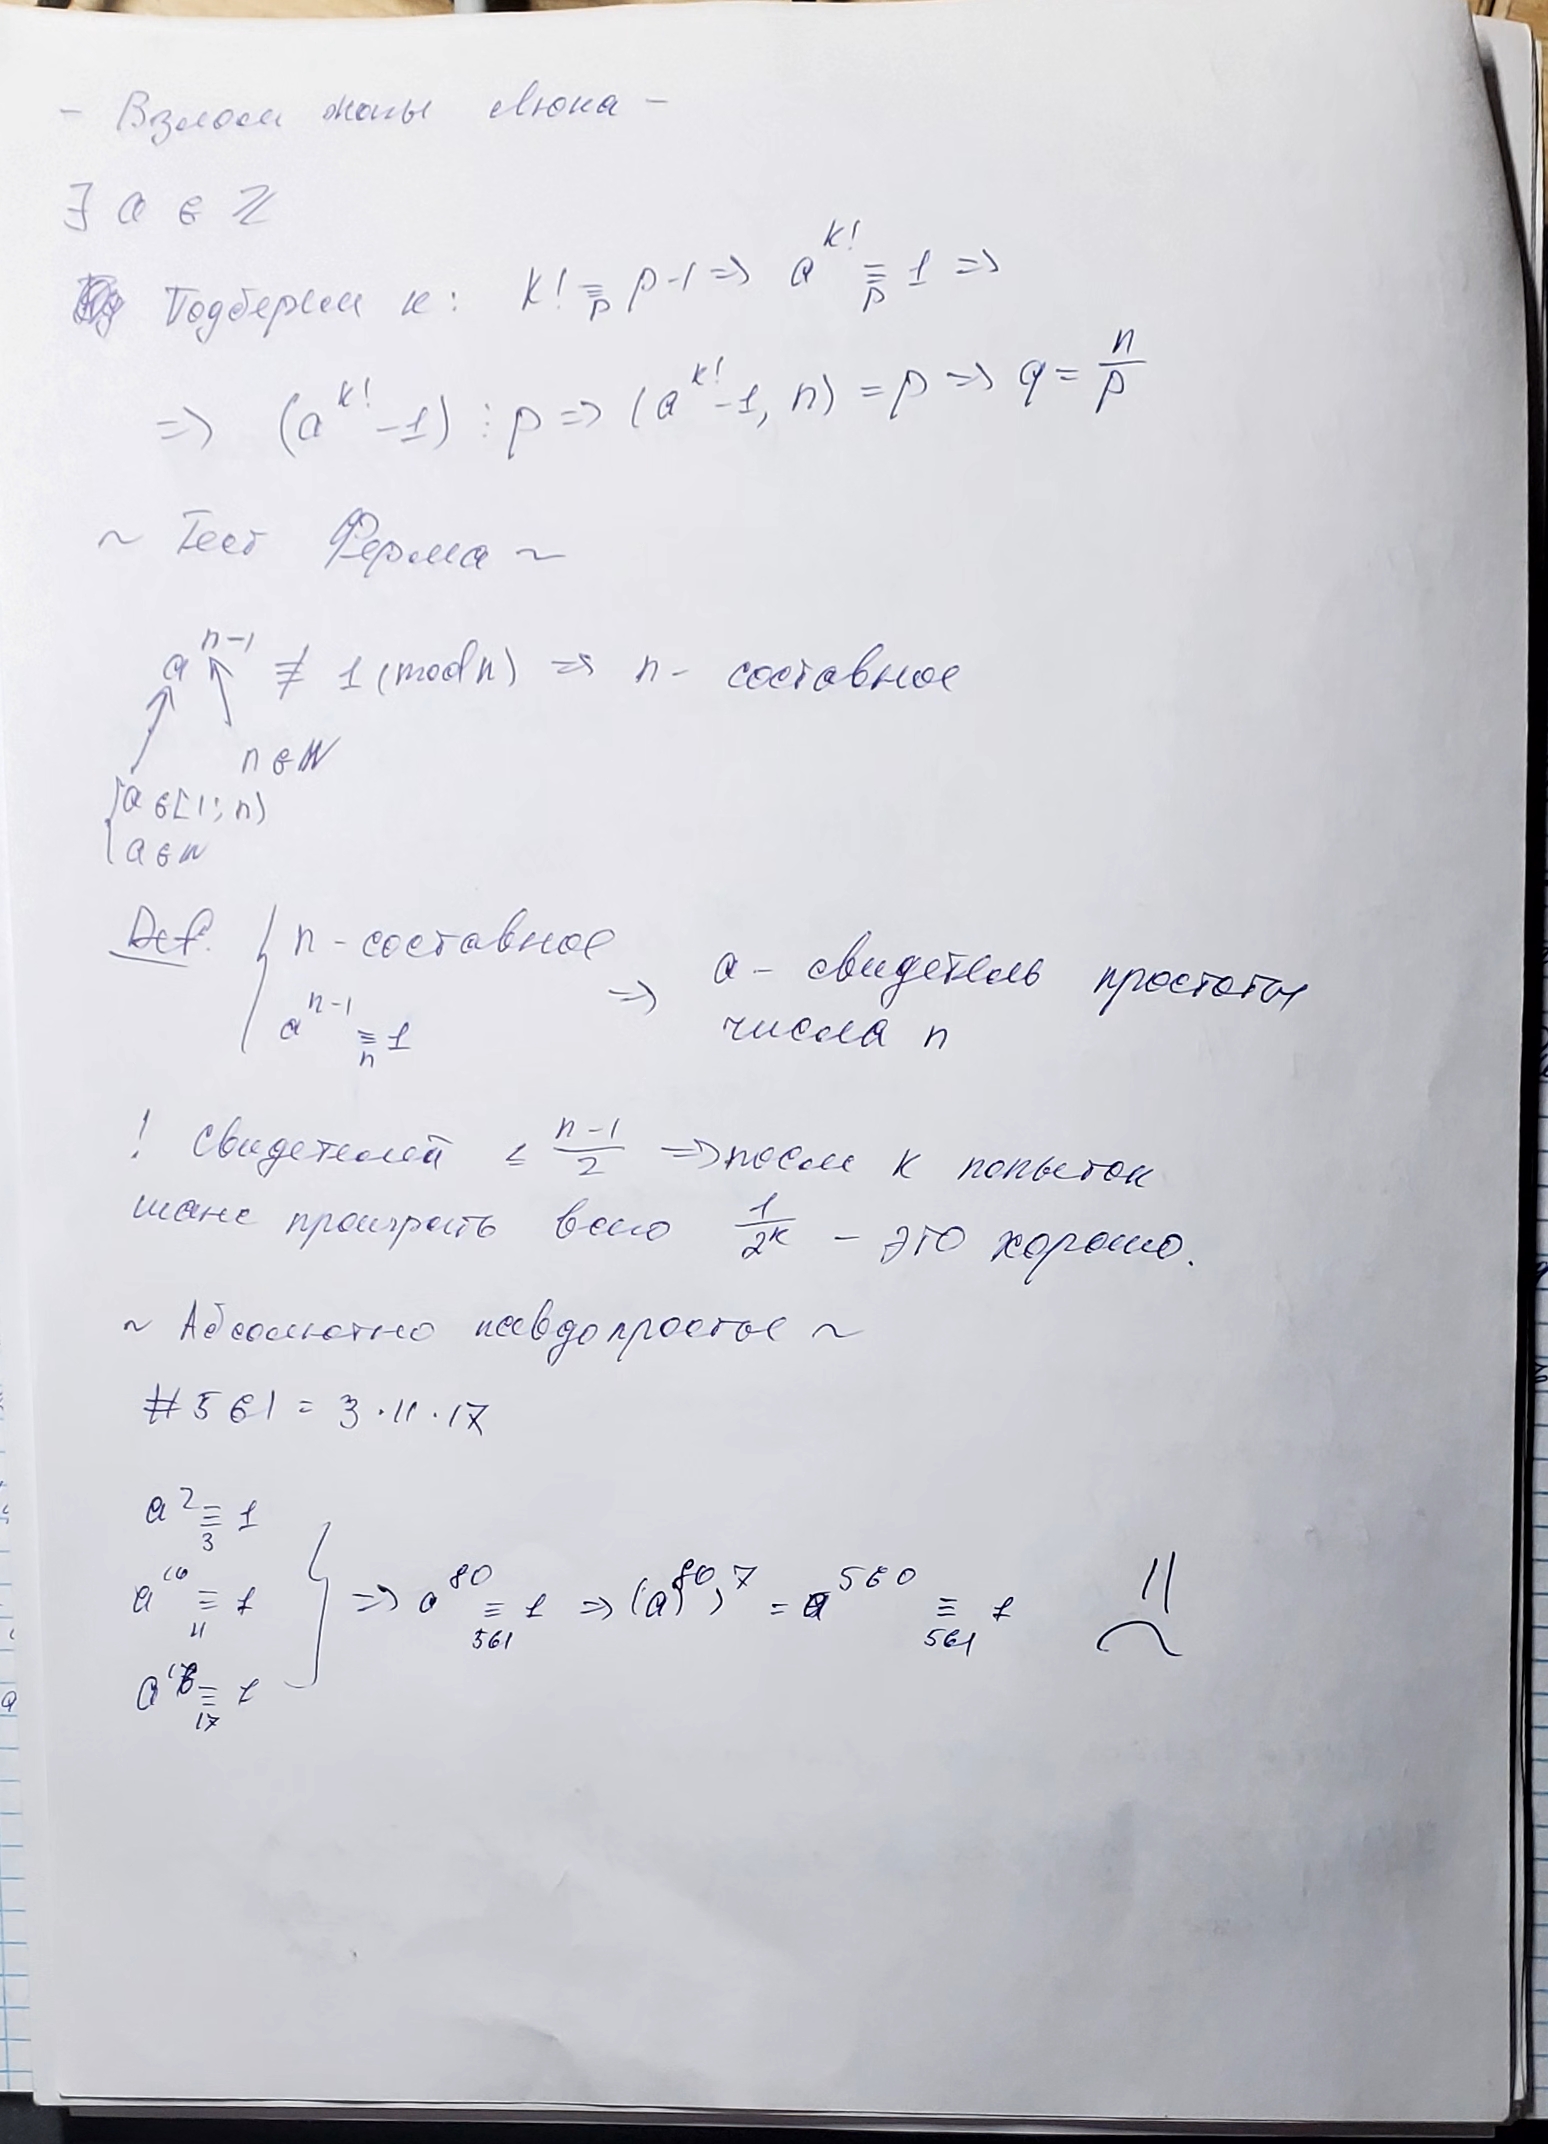 - Взлом жопы Люка -
∃ a ∈ ℤ
Подберём к: k! ≡ₚ p-1 => a^{k!} ≡ₚ 1 =>
=> (a^{k!} -1) ⋮ p => (a^{k!} -1, n) = p => q = n/p
~ Тест Ферма ~
a^{n-1} ≢ 1 (mod n) => n - составное
n ∈ ℕ
{ a ∈ [1; n)
a ∈ ℕ
Def. { n - составное
a^{n-1} ≡ₙ 1 => a - свидетель простоты
числа n
! Свидетелей ≤ (n-1)/2 => после к попыток
шанс проиграть всего 1/2^k - это хорошо.
~ Абсолютно псевдопростые ~
# 561 = 3 · 11 · 17
a² ≡₃ 1
a^{10} ≡₁₁ 1 } => a^{80} ≡₅₆₁ 1 => (a^{80})^7 = a^{560} ≡₅₆₁ 1
a^{16} ≡₁₇ 1